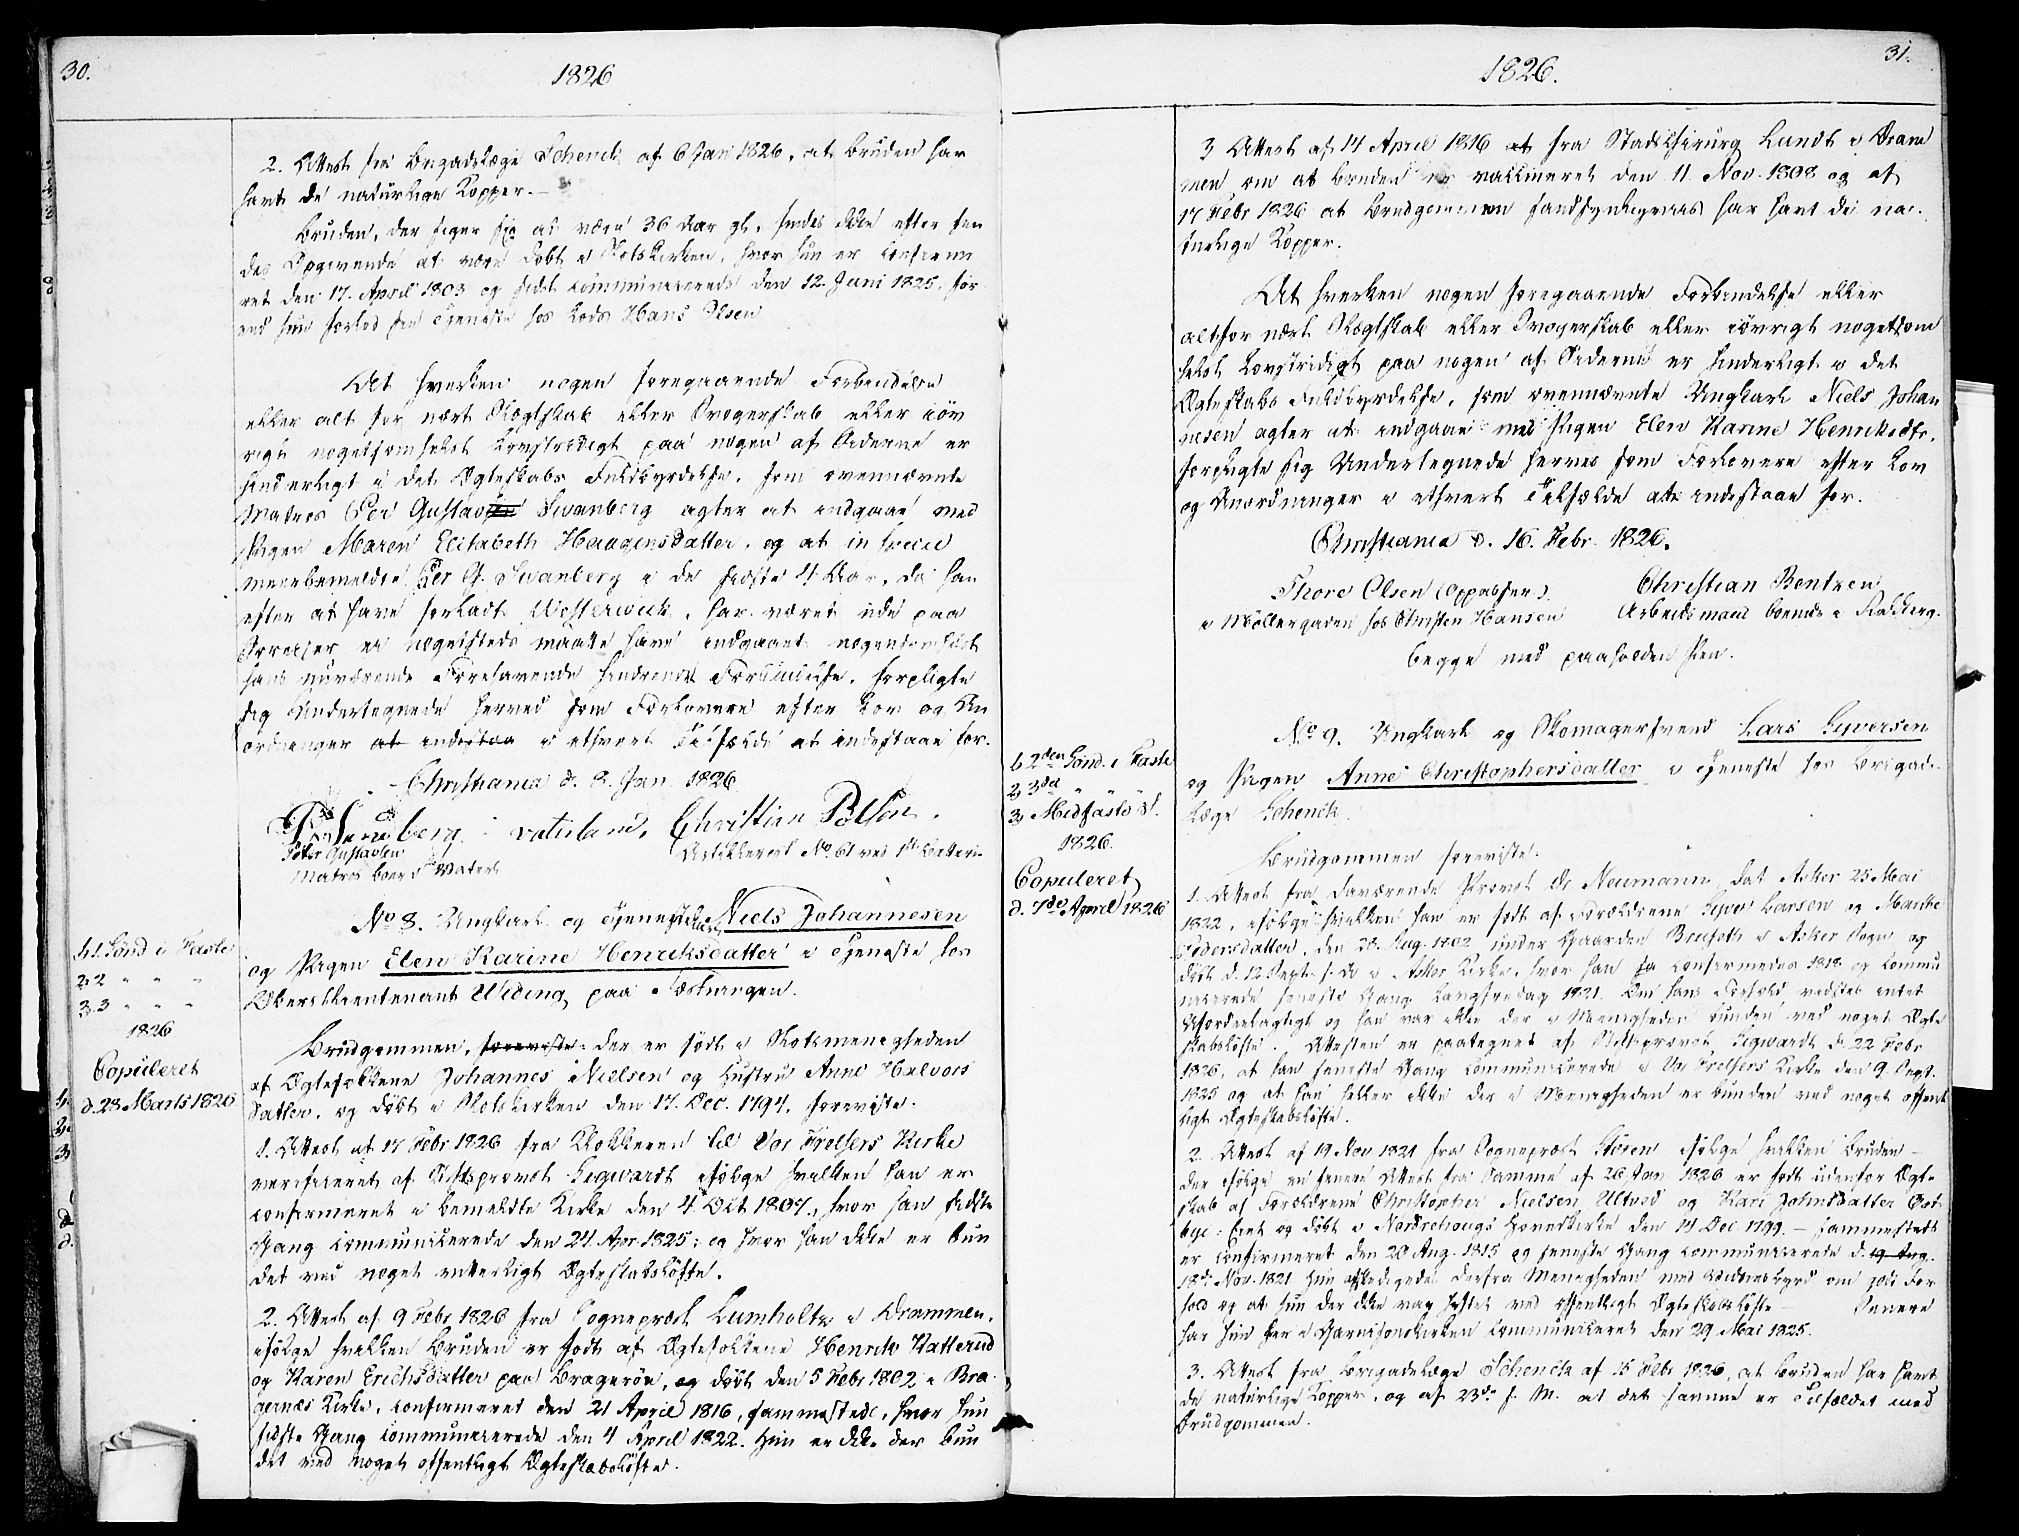 30.
1826
2. Attest fra Brigadelæge Schenck af 6 Jan 1826, at Bruden har
havt de naturlige Kopper.
Bruden, der siger sig at være 36 Aar gl., findes ikke efter hen
des Opgivende at være döbt i Slotskirken, hvor hun er confirme
ret den 17. April 1803 og sidst communicerede den 12. Juni 1825, för
end hun forlod sin Tjeneste hos Lods Hans Olsen
At hverken nogen foregaaende Forbindelse
eller alt for nært Slægtskab eller Svogerskab eller iöv
rigt nogetsomhelst Lovstridigt paa nogen af Siderne er
hinderligt i det Ægteskabs Fuldbyrdelse, som ovennævnte
Matros Per Gustav Svanberg agter at indgaae med
Pigen Maren Elisabeth Haagensdatter, og at
meerbemeldte Per G. Svanberg i de sidste 4 Aar, da han
efter at have forladt Westerwick, har været ude paa
Reiser ei nogetsteds maatte have indgaaet nogensomhelst
hans nuværende Forehavende hindrende Forbindelse, forpligte
sig Undertegnede herved som Forlovere efter Lov og An
ordninger at indestaa i ethvert Tilfælde at indestaae for.
Christiania d. 8. Jan 1826
P. Svanberg Vaterland, Christian Polsen.
Peter Gustavsen Artillerist No. 61 ved 1ste Batteri
Matros boende Vaterl
No. 8. Ungkarl og Tjenestekarl Niels Johannesen
og Pigen Elen Karine Henriksdatter i Tjeneste hos
Oberstlieutenant Widing paa Fæstningen.
1. 1 Sönd i Faste
2. 2 " " "
3. 3 " " "
1826
Copuleret
d. 28 Marts 1826
Brudgommen, foreviste: der er födt i Slotsmenigheden
af Ægtefolkene Johannes Nielsen og Hustru Anne Halvors
datter, og döbt i Slotskirken den 17. Dec. 1794, foreviste.
1. Attest af 17 Febr 1826 fra Klokkeren til Vor Frelsers Kirke
verificeret af Stiftsprovst Sigwardt ifölge hvilken han er
confirmeret i bemeldte Kirke den 4 Oct 1807, hvor han sidste
Gang communicerede den 24. Apr 1825; og hvor han ikke er bun
det ved noget Ægteskabslöfte.
2. Attest af 9 Febr 1826 fra Sognepræst Lumholtz i Drammen,
ifölge hvilken Bruden er födt af Ægtefolkene Henrik Katterud
og Karen Erichsdatter paa Bragerøen, og döbt den 5 Febr 1802 i Bra
gernæs Kirke, confirmeret den 21 April 1816, sammestede, hvor hun
sidste Gang communicerede den 4 April 1822. Hun er ikke der bun
det ved noget offentligt Ægteskabslöfte.
31.
1826.
3 Attest af 17 April 1816 at fra Stadschirurg Lundt i Dram
men om at Bruden er vaccineret den 11. Nov. 1808 og af
17 Febr 1826 at Brudgommen sandsynligviis har havt de na-
turlige Kopper.
At hverken nogen foregaaende Forbindelse eller
altfor nært Slægtskab eller Svogerskab eller iövrigt nogetsom
helst Lovstridigt paa nogen af Siderne er hinderligt i det
Ægteskabs Fuldbyrdelse, som ovennævnte Ungkarl Niels Johan
nesen agter at indgaae med Pigen Elen Karine Henriksdtr.
forpligte sig Undertegnede herved som Forlovere efter Lov
og Anordninger i ethvert Tilfælde at indestaae for.
Christiania d. 16. Febr. 1826.
Thore Olsen (Oppassen). Christian Bentzen
i Möllergaden hos Christen Hansen Arbeidsmand boende i
begge med paaholden Pen.
1. 2den Sönd. i Faste
2. 3die "
3. Midfaste S.
1826.
Copuleret
d. 7de April 1826
No. 9. Ungkarl og Skomagersvend Lars Syversen
og Pigen Anne Christophersdatter i Tjeneste hos Brigade-
læge Schenck.
Brudgommen foreviste.
1. Attest fra daværende Provst Dr Neumann, dat Asker 25 Mai
1822, ifölge hvilken han er födt af Forældrene Syver Larsen og Marthe
Pedersdatter, den 28. Aug. 1802 under Gaarden Bruseth i Asker Sogn og
döbt d. 12 Sept. s. A. i Asker Kirke, hvor han confirmeredes 1818 og commu
nicerede seneste Gang Langfredag 1821. Om hans Forhold vidstes intet
Ufordeelagtigt og han var ikke der i Menigheden bunden ved noget Ægte
skabslöfte. Attesten er paategnet af Stiftsprovst Sigwardt d. 22 Febr
1826, at han seneste Gang communicerede i Vor Frelsers Kirke den 9 Sept.
1825 og at han heller ikke der i Menigheden er bunden ved noget offent
ligt Ægteskabslöfte.
2. Attest af 19 Nov 1821 fra Sognepræst Stören ifölge hvilken Bruden
der ifölge en senere Attest fra Samme af 26 Jan 1826 er födt udenfor Ægte
skab af Forældrene Christopher Nielsen Ultved og Kari Johnsdatter
bye: Eiet og döbt i Nordrehougs Hovedkirke den 14 Dec 1799. – sammesteds
er confirmeret den 20 Aug. 1815 og seneste Gang communicerede d. 19 Aug.
18de Nov. 1821 Hun afskedigedes derfra Menigheden med Vidnesbyrd om godt For
hold og at hun der ikke var hæftet ved offentligt Ægteskabslöfte – Senere
har hun her i Garnisonskirken communiceret den 29 Mai 1825.
3. Attest fra Brigadelæge Schenck af 15 Febr 1826, at Bruden har havt
de naturlige Kopper, og af 23de s. M. at det samme er Tilfældet med
Brudgommen.